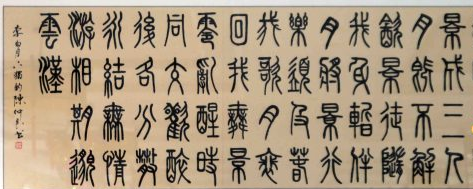 景成三人
月既不解
飲景徒隨
我身暫伴
月將景行
樂須及春
我歌月裵
回我舞景
零亂醒時
同交歡醉
後各分散
永結無情
游相期邈
雲漢
李白月下獨酌陳仲